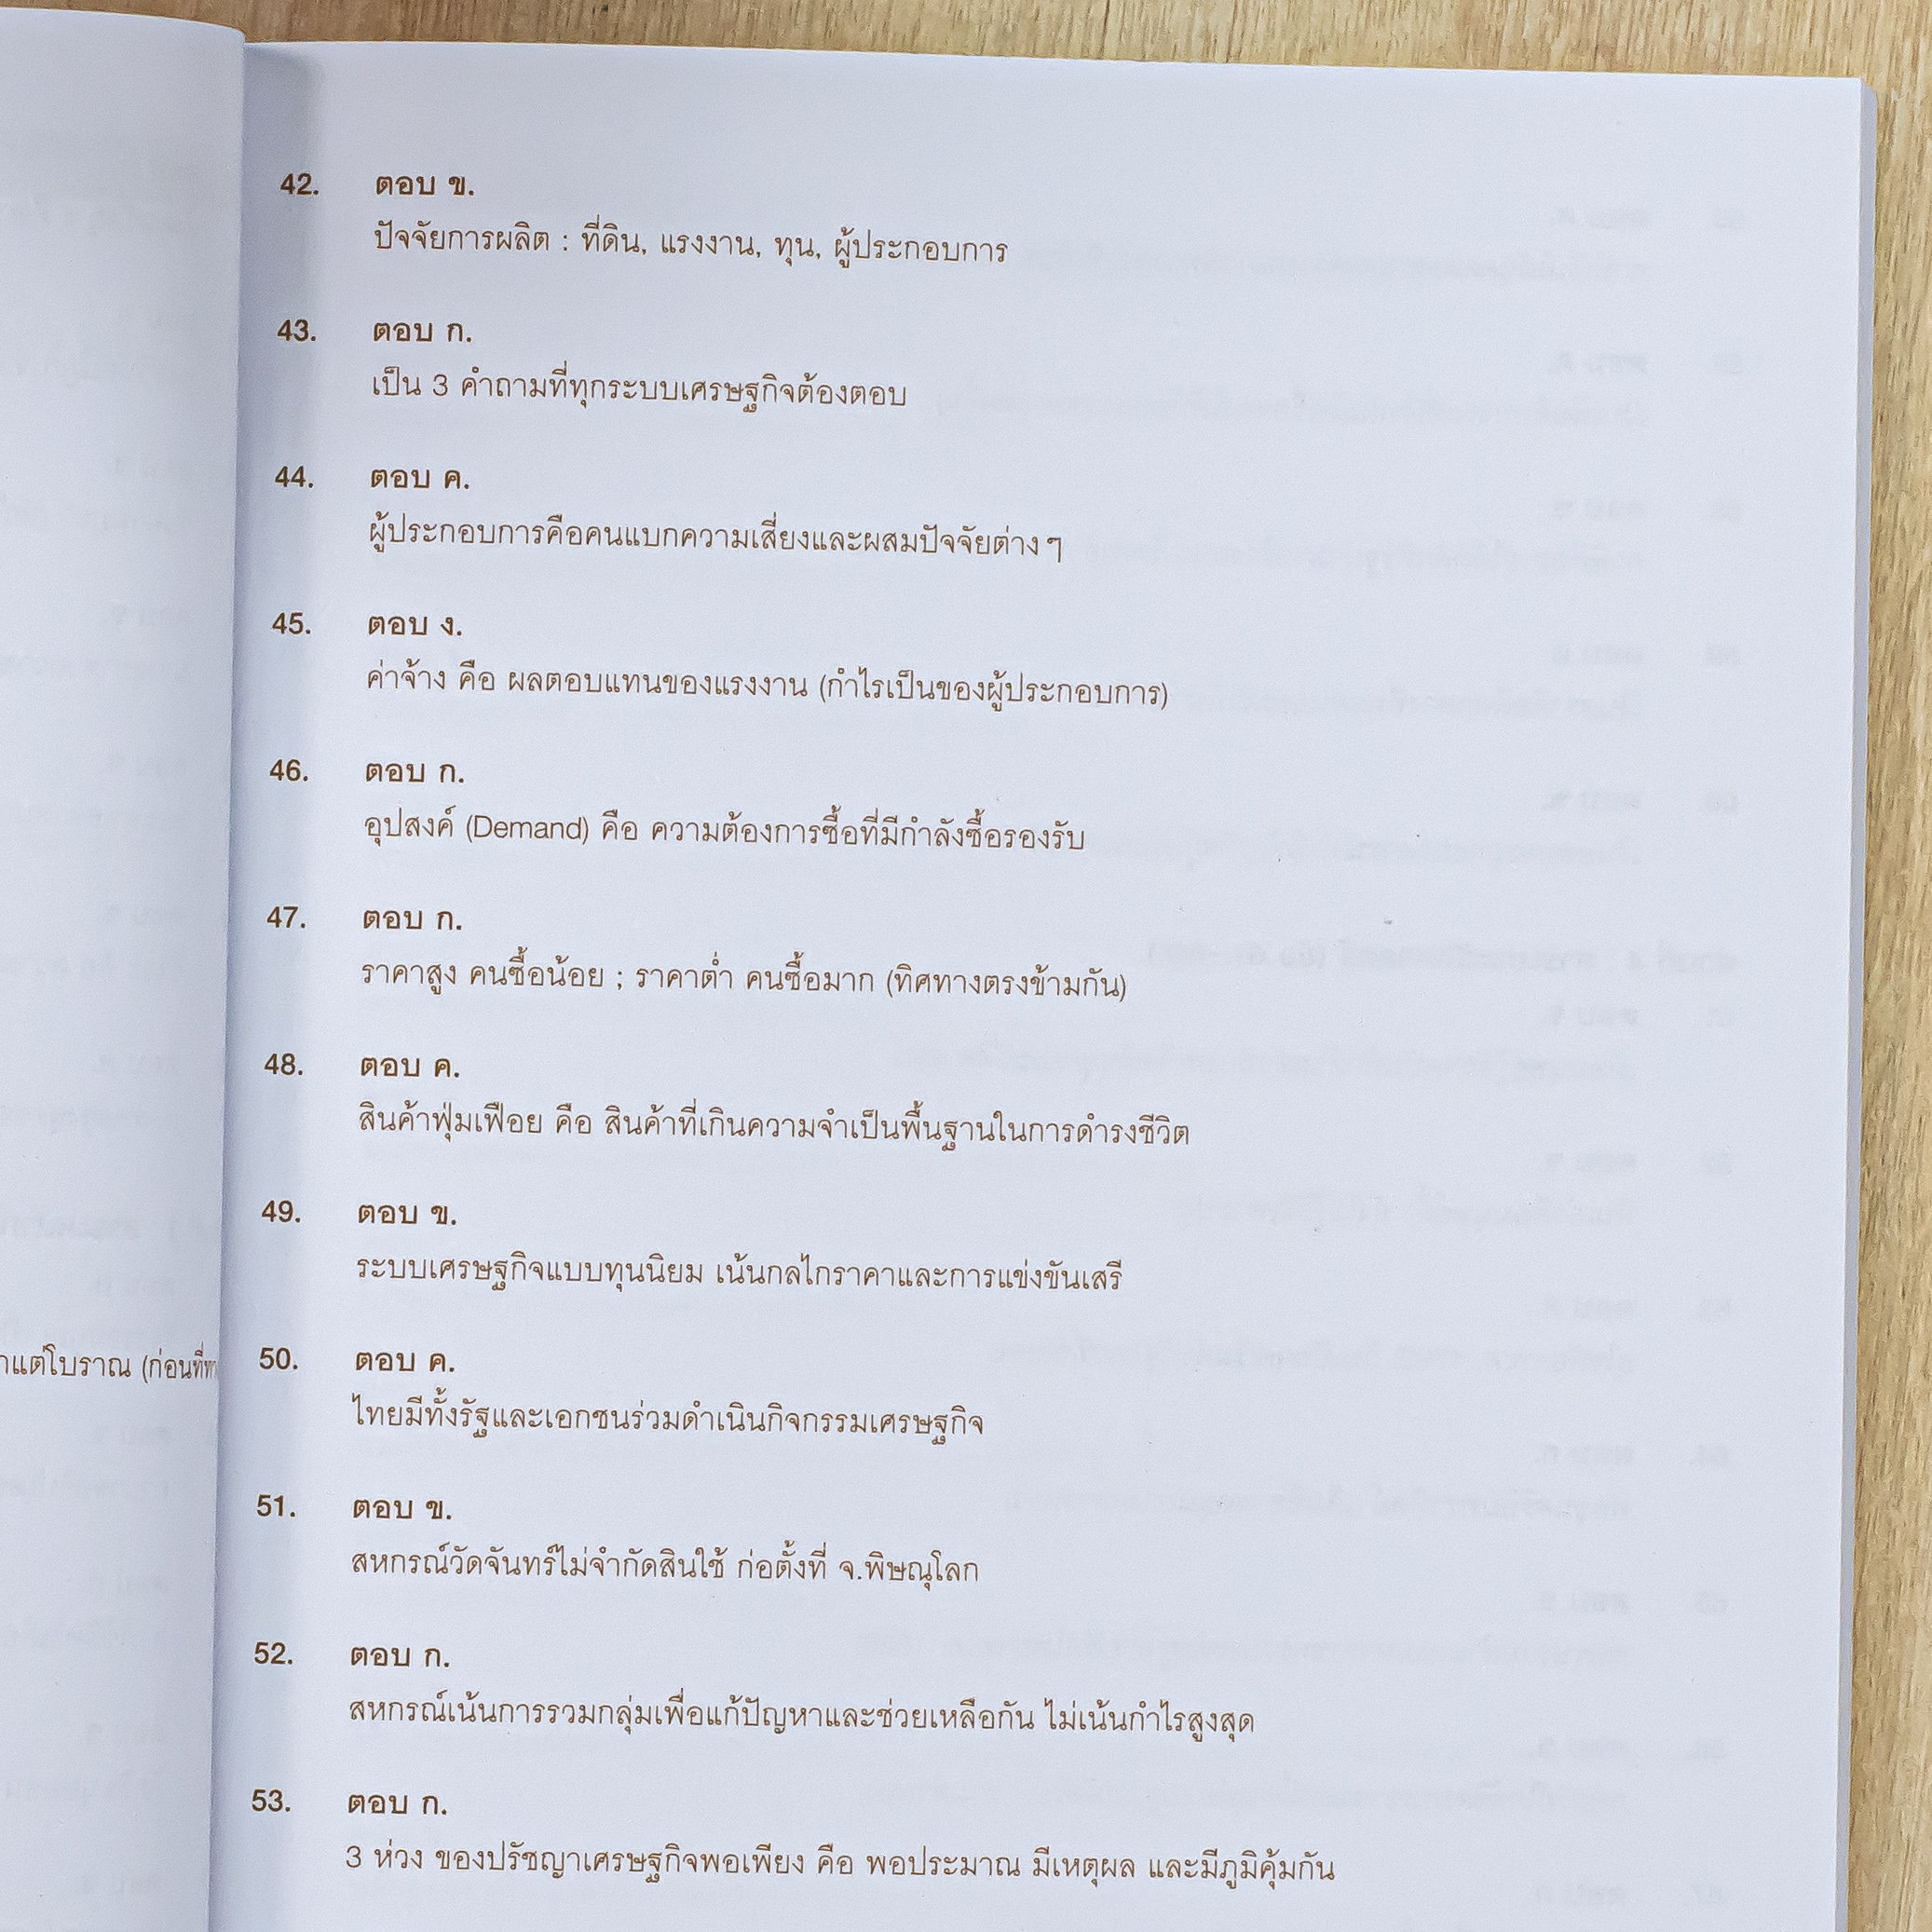 42. ตอบ ข.
ปัจจัยการผลิต : ที่ดิน, แรงงาน, ทุน, ผู้ประกอบการ
43. ตอบ ก.
เป็น 3 คำถามที่ทุกระบบเศรษฐกิจต้องตอบ
44. ตอบ ค.
ผู้ประกอบการคือคนแบกความเสี่ยงและผสมปัจจัยต่าง ๆ
45. ตอบ ง.
ค่าจ้าง คือ ผลตอบแทนของแรงงาน (กำไรเป็นของผู้ประกอบการ)
46. ตอบ ก.
อุปสงค์ (Demand) คือ ความต้องการซื้อที่มีกำลังซื้อรองรับ
47. ตอบ ก.
ราคาสูง คนซื้อน้อย ; ราคาต่ำ คนซื้อมาก (ทิศทางตรงข้ามกัน)
48. ตอบ ค.
สินค้าฟุ่มเฟือย คือ สินค้าที่เกินความจำเป็นพื้นฐานในการดำรงชีวิต
49. ตอบ ข.
ระบบเศรษฐกิจแบบทุนนิยม เน้นกลไกราคาและการแข่งขันเสรี
50. ตอบ ค.
ไทยมีทั้งรัฐและเอกชนร่วมดำเนินกิจกรรมเศรษฐกิจ
51. ตอบ ข.
สหกรณ์วัดจันทร์ไม่จำกัดสินใช้ ก่อตั้งที่ จ.พิษณุโลก
52. ตอบ ก.
สหกรณ์เน้นการรวมกลุ่มเพื่อแก้ปัญหาและช่วยเหลือกัน ไม่เน้นกำไรสูงสุด
53. ตอบ ก.
3 ห่วง ของปรัชญาเศรษฐกิจพอเพียง คือ พอประมาณ มีเหตุผล และมีภูมิคุ้มกัน
แต่โบราณ (ก่อนที่